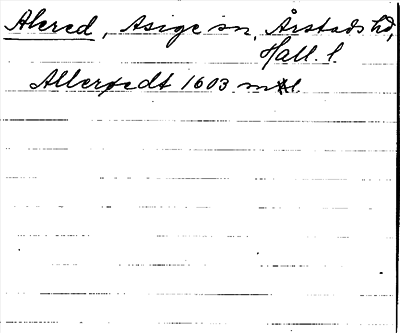 Alered, Asige sn, Årstads hd,
Hall. l.
Allerstedt 1603 mtl